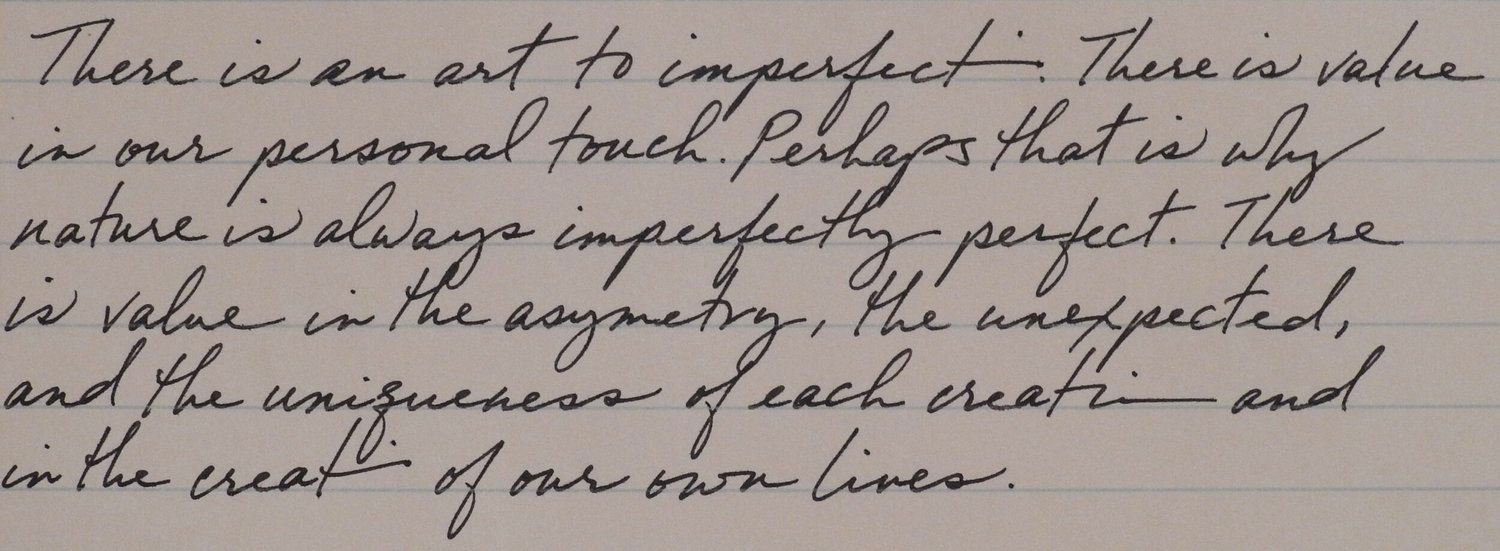 There is an art to imperfection. There is value
in our personal touch. Perhaps that is why
nature is always imperfectly perfect. There
is value in the asymetry, the unexpected,
and the uniqueness of each creation and
in the creation of our own lives.